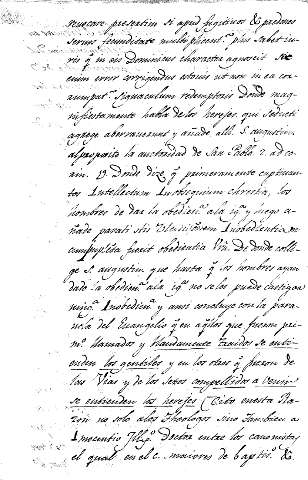 revocare presertim si apud fugitivos & predones
servus fecunditate multiplicent.r plus habet iu-
ris q.e in eis Dominicus character agnoscit
enim error corrigendus ut non in ea co-
rumpat.r signaculum redemptoris Donde ma-
nifiestamente habla de los herejes, que
agrege aberraverunt y añade alli S. augustin
al proposito la autoridad de San Pablo 2. ad co-
rin. Donde dize q.e primeramente captivan-
tes Intellectum Inobsequium Christi, los
hombres de dar la obedien.a ala ig.a y luego a-
ñade parati Inobedientia
cum fuerit obedientia De donde colli-
ge S. augustin que hasta q.e los hombres ayan
dado la obedien.a ala ig.a no se los puede castigar
Inobedien.a y assi concluye con la para-
uola del Evangelio q.e en aq.llos que fueron pri-
m.o llamados y blandamente traidos se enti-
enden los gentiles y en los otros q.e fueron de
las Vias y de los setos compellidos a venir
se entienden los herejes (Cito en esta Ra-
zon no solo alos Theologos sino tambien a
Inocentio Doctor entre los canonistas
el qual en el c. maiores de baptis.o &.